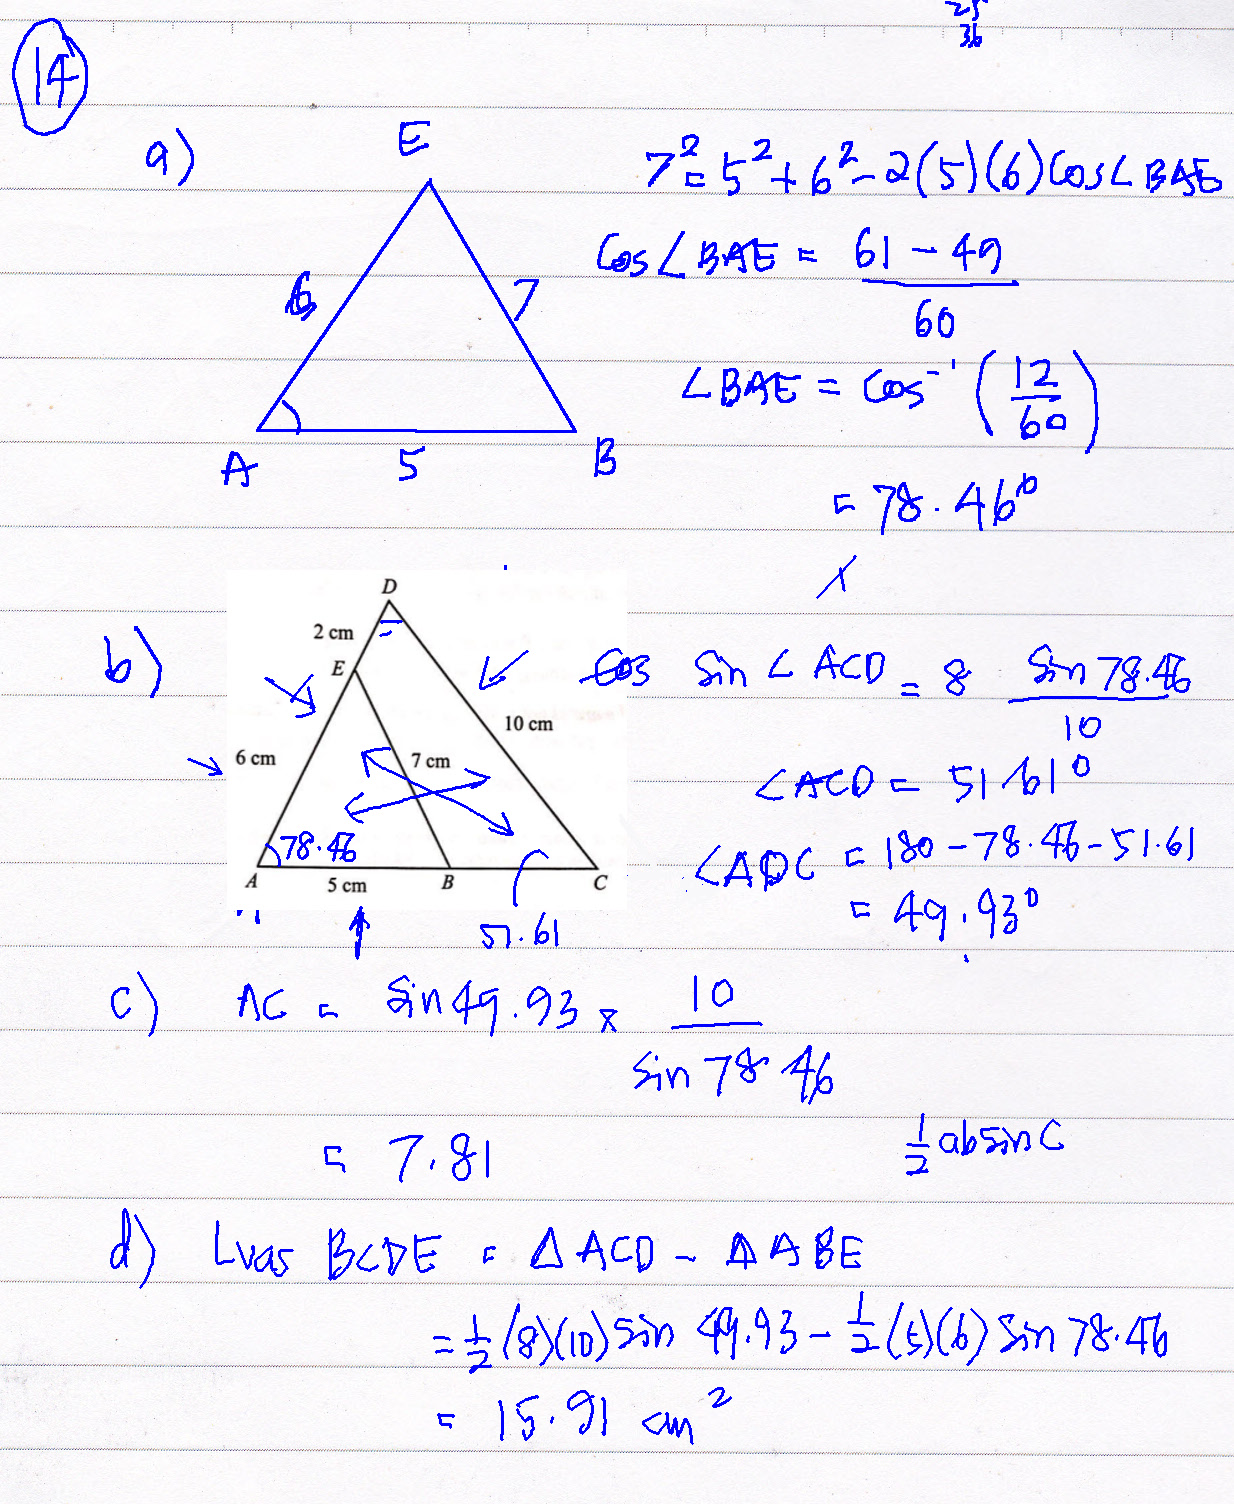 25
36
14
a)
E
7² = 5² + 6² - 2(5)(6) Cos∠BAE
6
7
Cos∠BAE = 61 - 49
60
∠BAE = Cos⁻¹ (12/60)
A 5 B
= 78.46°
b)
D
2 cm
E
10 cm
6 cm
7 cm
78.46
A 5 cm B C
51.61
Cos Sin ∠ACD = 8 Sin 78.46
10
∠ACD = 51.61°
∠ADC = 180 - 78.46 - 51.61
= 49.93°
c) AC = Sin 49.93 × 10
Sin 78.46
= 7.81
½ ab Sin C
d) Luas BCDE = Δ ACD - Δ ABE
= ½ (8)(10) Sin 49.93 - ½ (5)(6) Sin 78.46
= 15.91 cm²